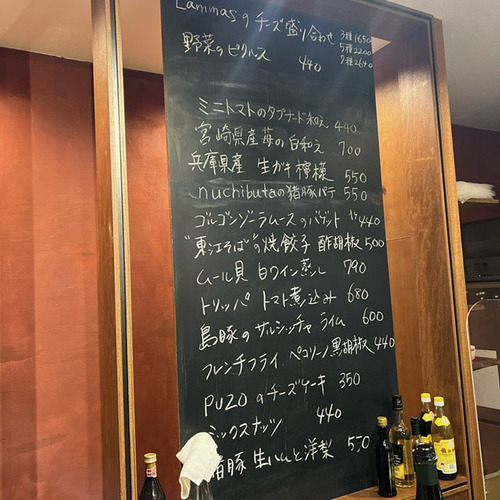 Lammasのチーズ盛り合わせ 3種1650
5種2200
7種2640
野菜のピクルス 440
ミニトマトのタプナード和え 440
宮崎県産苺の白和え 700
兵庫県産 生ガキ 檸檬 550
nuchibutaの猪豚パテ 550
ゴルゴンゾーラムースのバゲット 440
"東江そば"の焼餃子 酢胡椒 500
ムール貝 白ワイン蒸し 790
トリッパ トマト煮込み 680
島豚のサルシッチャ ライム 600
フレンチフライ ペコリーノ黒胡椒 440
PUZOのチーズケーキ 350
ミックスナッツ 440
猪豚 生ハムと洋梨 550